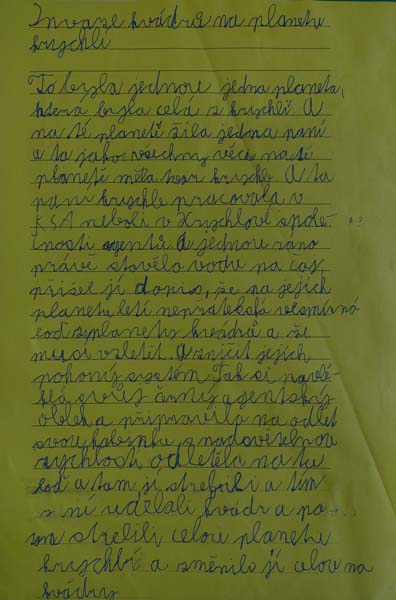 Invaze kvádrů na planetu
krychlí
To byla jednou jedna planeta,
která byla celá z krychlí. A
na té planetě žila jedna paní
a ta jako všechny věci na té
planetě měla tvar krychle. A ta
paní krychle pracovala v
KSA neboli v Krychlové spole-
čnosti agentů. A jednou ráno
právě stavěla vodu na čaj,
přišel jí dopis, že na jejich
planetu letí nepřátelská vesmírná
loď z planety kvádrů a že
musí vzletět. A zničit jejich
pohonný systém. Tak si navlé-
kla svůj černý agentský
oblek a připravila na odlet
svou kabinku, s nadsvětelnou
rychlostí odletěla na tu
loď a tam jí střelili a tím
z ní udělali kvádr a pa...
sem střelili celou planetu
krychlí a změnili jí celou na
kvádry